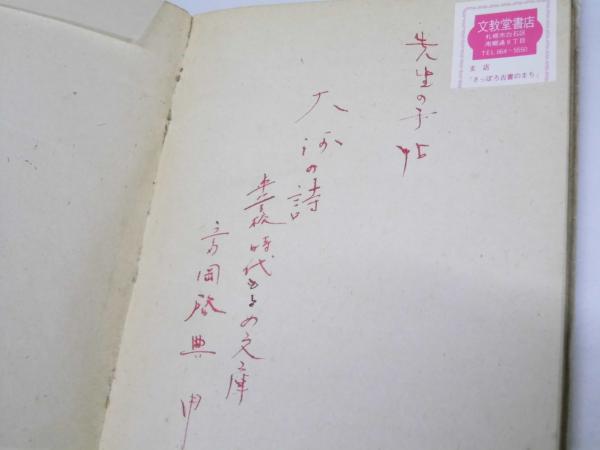 先生の手帖
大河の詩
時代 の文庫
高岡啓典 用
文教堂書店
札幌市白石区
南郷通9丁目
TEL 864-5550
支店
「さっぽろ古書のまち」